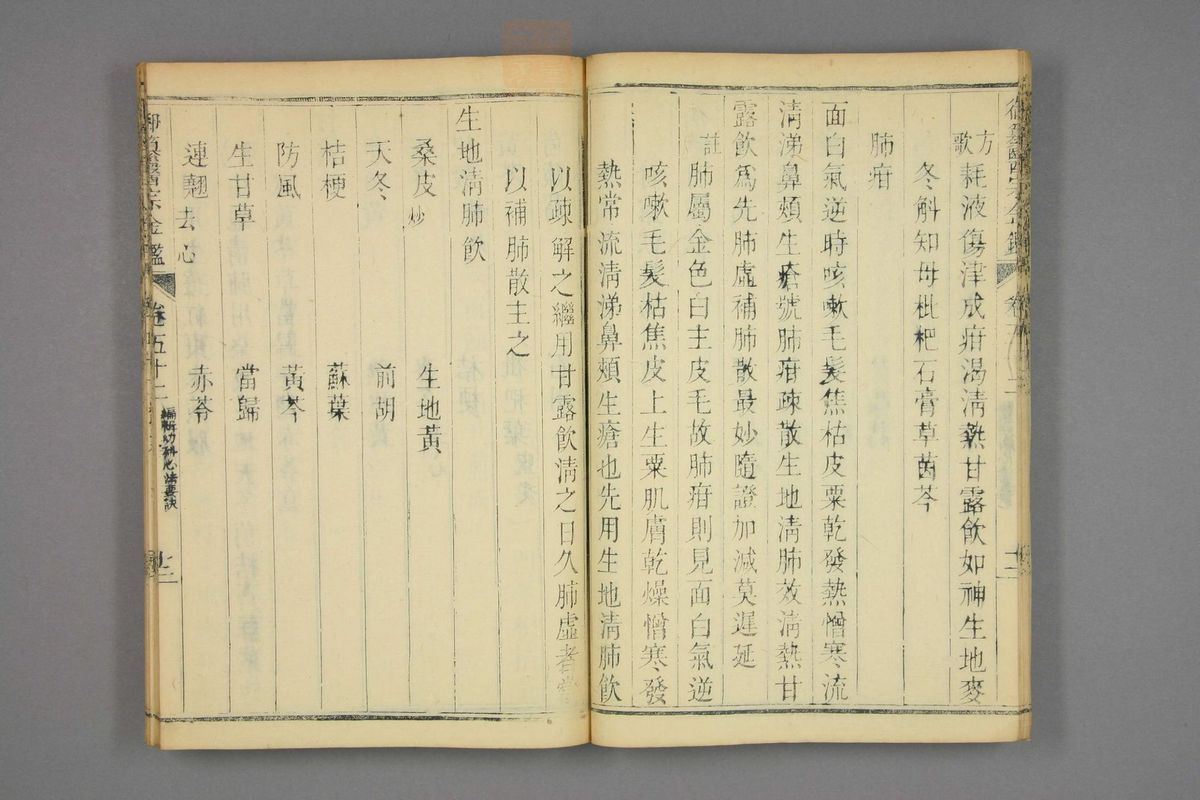 方歌 耗液傷津成疳渴清熱甘露飲如神生地麥
冬斛知母枇杷石膏草茵芩
肺疳
面白氣逆時咳嗽毛髮焦枯皮粟乾發熱憎寒流
清涕鼻頰生瘡號肺疳疎散生地清肺效清熱甘
露飲爲先肺虛補肺散最妙隨證加減莫遲延
註 肺屬金色白主皮毛故肺疳則見面白氣逆
咳嗽毛髮枯焦皮上生粟肌膚乾燥憎寒發
熱常流清涕鼻頰生瘡也先用生地清肺飲
以疎解之繼用甘露飲清之日久肺虛者當
以補肺散主之
生地清肺飲
桑皮炒 生地黃
天冬 前胡
桔梗 蘇葉
防風 黃芩
生甘草 當歸
連翹去心 赤苓
御纂醫宗金鑑 卷五十二 編輯幼科心法要訣